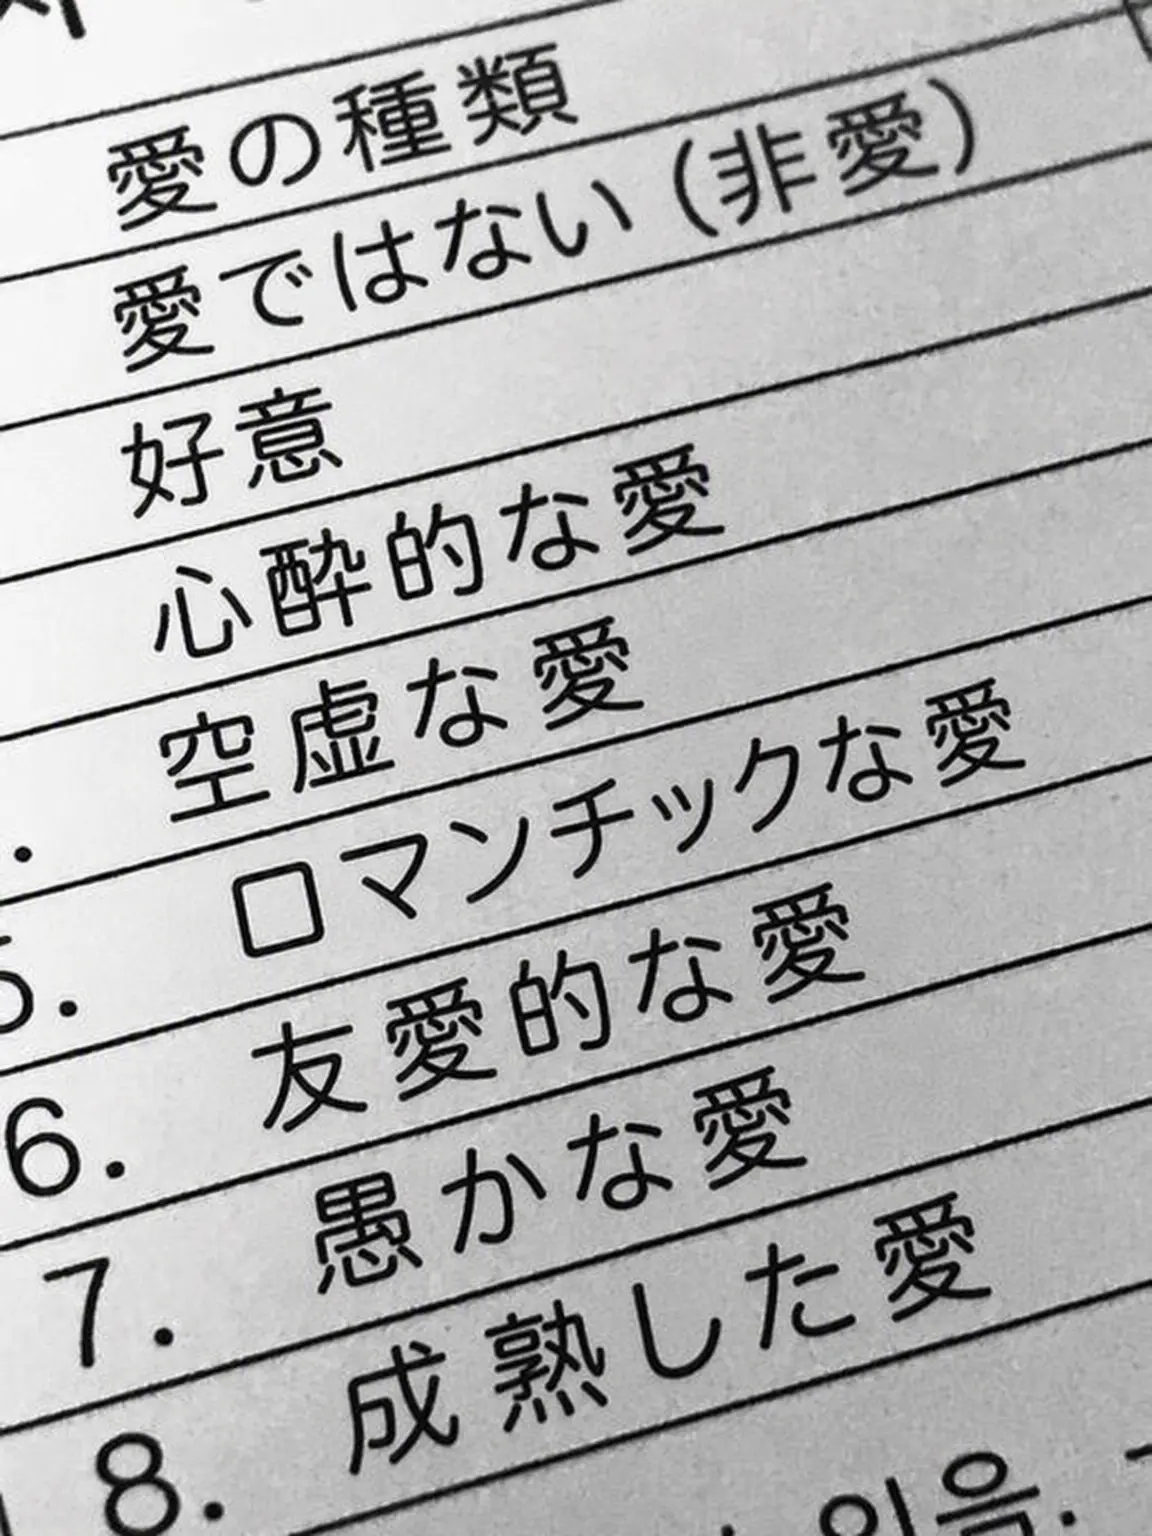 愛の種類
愛ではない (非愛)
好意
心酔的な愛
空虚な愛
5. ロマンチックな愛
6. 友愛的な愛
7. 愚かな愛
8. 成熟した愛
있음.